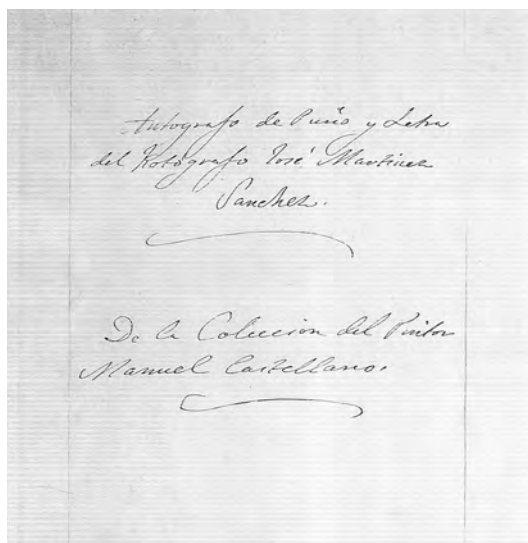 Autografo de Puño y Letra
del Fotógrafo José Martinez
Sanchez.
De la Coleccion del Pintor
Manuel Castellano.